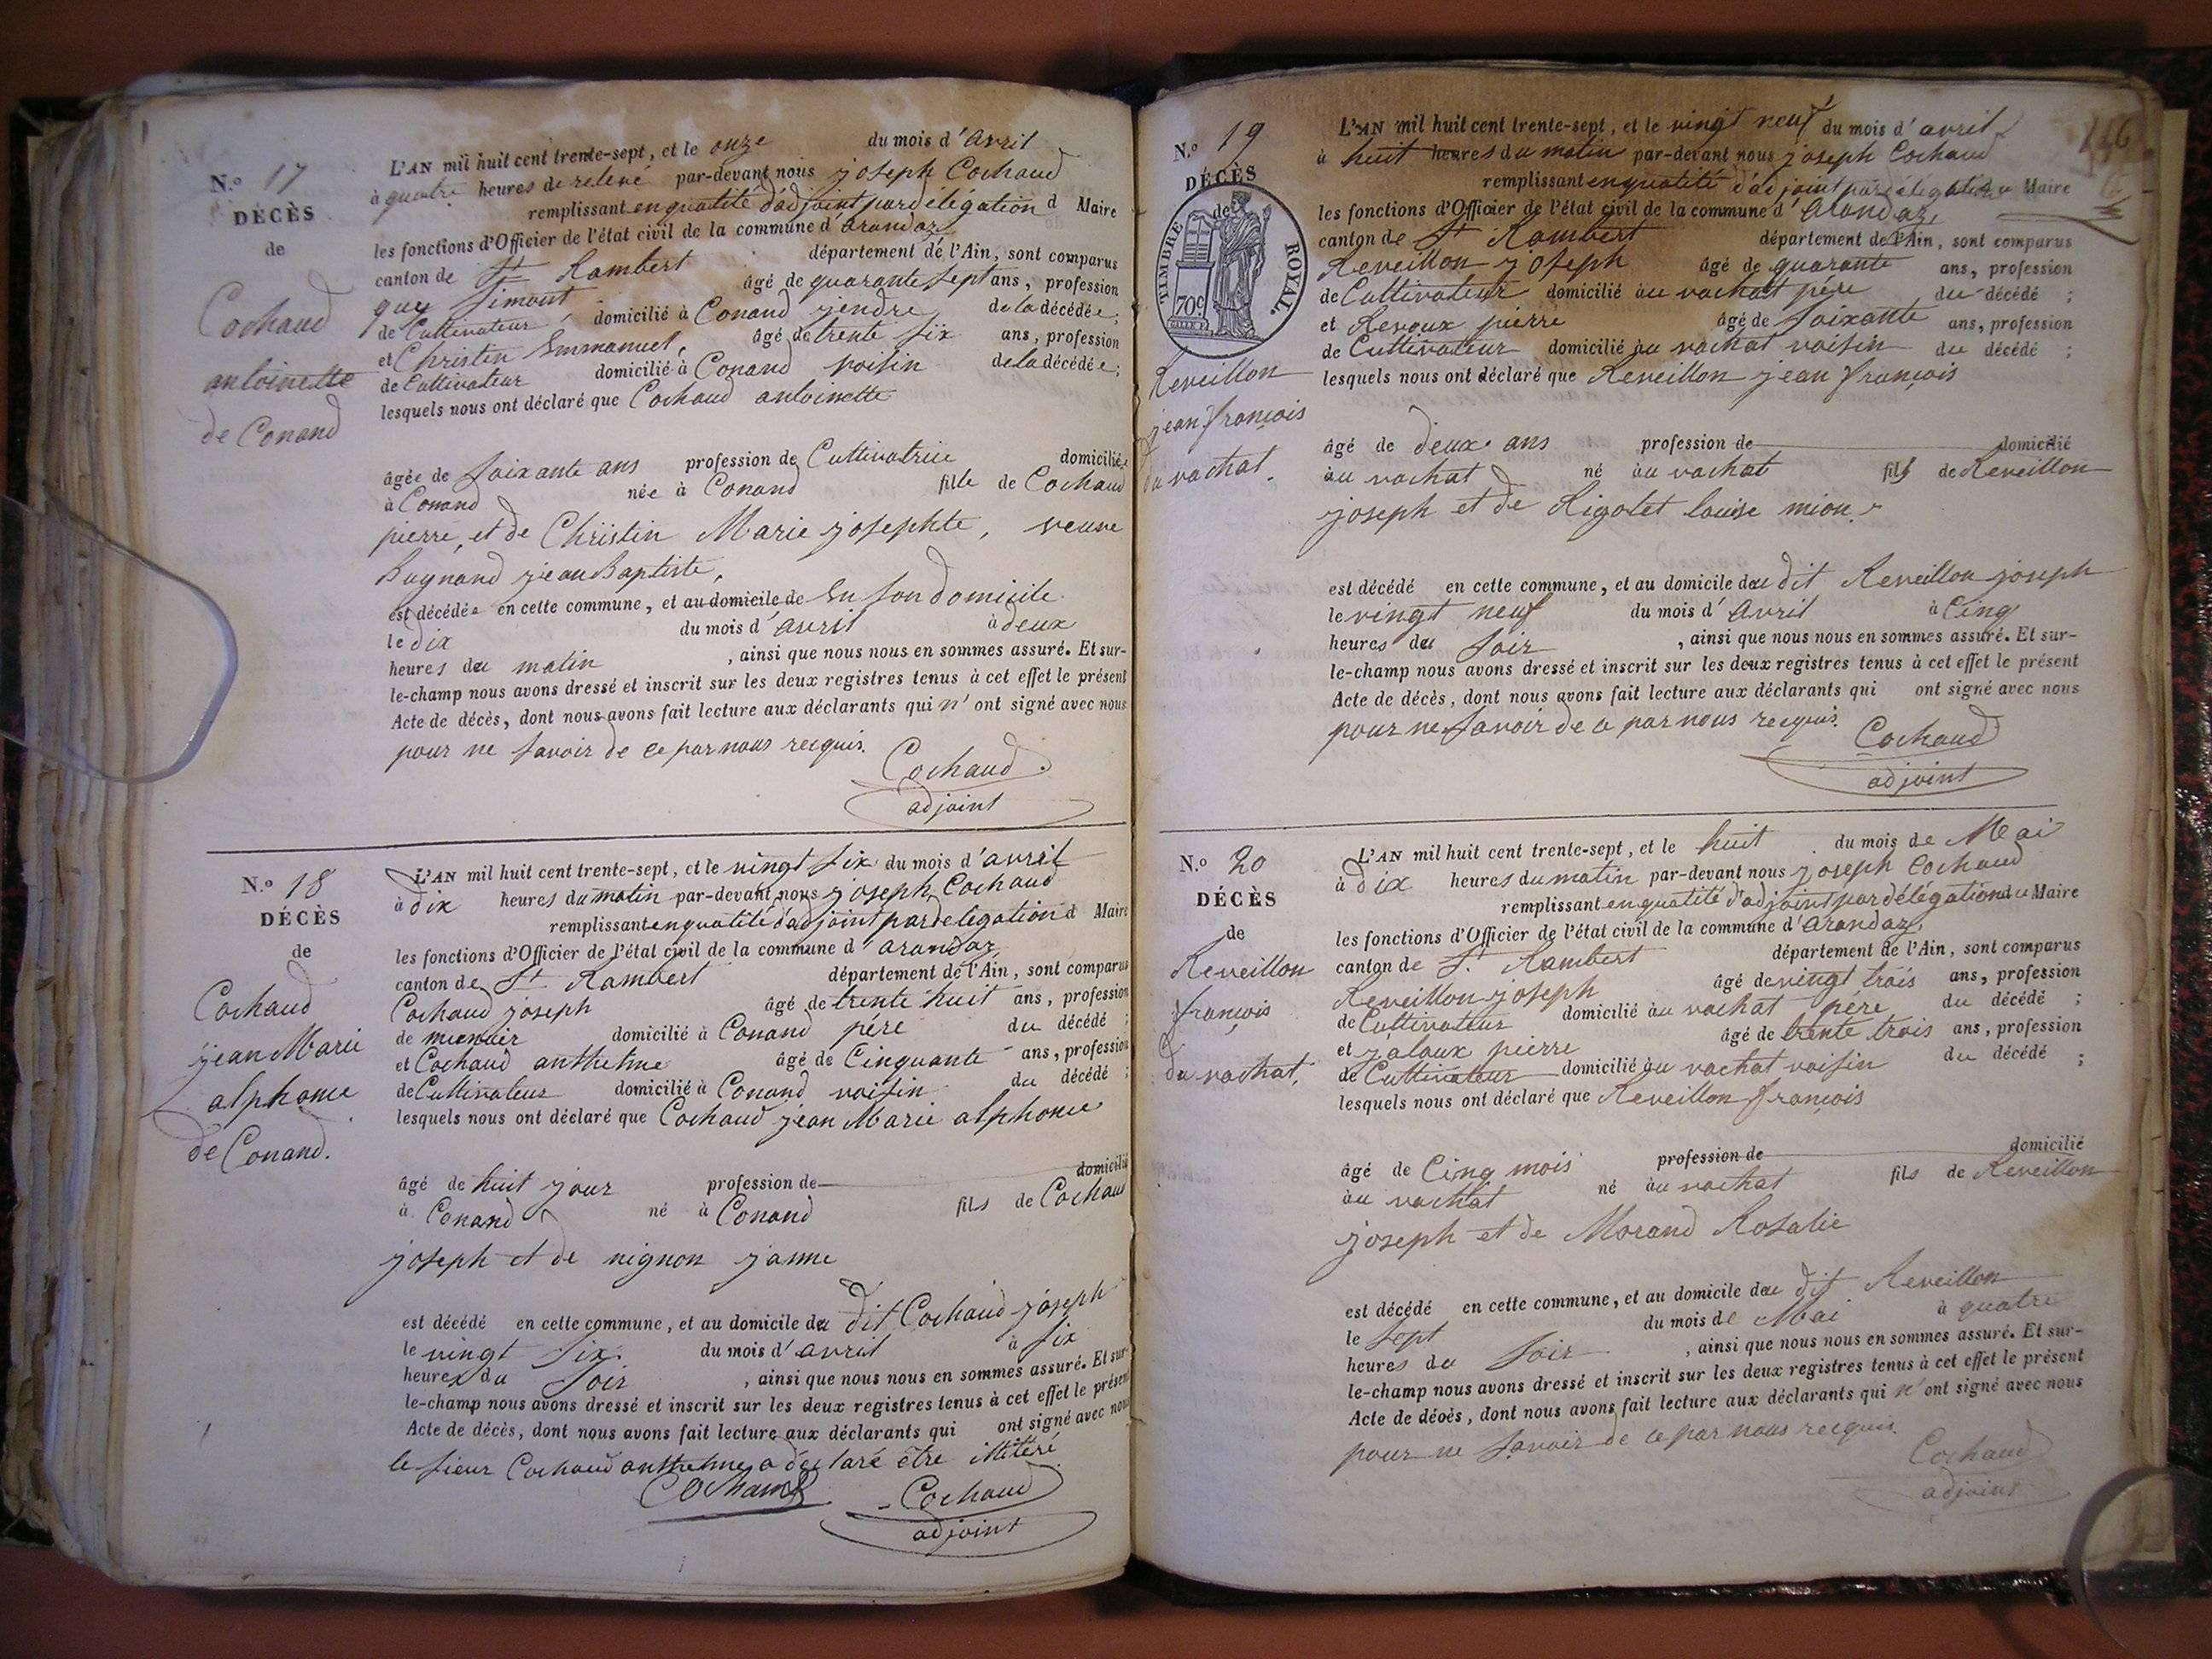 N.º 17
DÉCÈS
de
Cochaud
antoinette
de Conand
L'AN mil huit cent trente-sept, et le onze du mois d'avril
à quatre heures de relevé par-devant nous joseph Cochaud
remplissant en qualité d'adjoint par délégation d Maire
les fonctions d'Officier de l'état civil de la commune d'arandaz
canton de St Rambert département de l'Ain, sont comparus
guy Simont âgé de quarante sept ans, profession
de Cultivateur, domicilié à Conand jendre de la décédée;
et Christin Emmanuel, âgé de trente six ans, profession
de Cultivateur domicilié à Conand voisin de la décédée;
lesquels nous ont déclaré que Cochaud antoinette
âgée de soixante ans profession de Cultivatrice domiciliée
à Conand née à Conand fille de Cochaud
pierre, et de Christin Marie josephte, veuve
Bugnand jean Baptiste,
est décédée en cette commune, et au domicile de En son domicile
le dix du mois d'avril à deux
heures du matin, ainsi que nous nous en sommes assuré. Et sur-
le-champ nous avons dressé et inscrit sur les deux registres tenus à cet effet le présent
Acte de décès, dont nous avons fait lecture aux déclarants qui n'ont signé avec nous
pour ne savoir de ce par nous recquis.
Cochaud
adjoint
N.º 18
DÉCÈS
de
Cochaud
jean Marie
alphonse
de Conand.
L'AN mil huit cent trente-sept, et le vingt six du mois d'avril
à dix heures du matin par-devant nous joseph Cochaud
remplissant en qualité d'adjoint par délégation d Maire
les fonctions d'Officier de l'état civil de la commune d'arandaz
canton de St Rambert département de l'Ain, sont comparus
Cochaud joseph âgé de trente huit ans, profession
de domicilié à Conand père du décédé;
et Cochaud anthelme âgé de Cinquante ans, profession
de Cultivateur domicilié à Conand voisin du décédé;
lesquels nous ont déclaré que Cochaud jean Marie alphonse
âgé de huit jour profession de domicilié
à Conand né à Conand fils de Cochaud
joseph et de nignon janne
est décédé en cette commune, et au domicile du dit Cochaud joseph
le vingt six du mois d'avril à six
heures du soir, ainsi que nous nous en sommes assuré. Et sur-
le-champ nous avons dressé et inscrit sur les deux registres tenus à cet effet le présent
Acte de décès, dont nous avons fait lecture aux déclarants qui ont signé avec nous
le sieur Cochaud anthelme a déclaré être illitéré
Cochaud
Cochaud
adjoint
N.º 19
DÉCÈS
de
TIMBRE ROYAL.
70c
Reveillon
jean françois
du vachat.
L'AN mil huit cent trente-sept, et le vingt neuf du mois d'avril
à huit heures du matin par-devant nous joseph Cochaud
remplissant en qualité d'adjoint par délégation du Maire
les fonctions d'Officier de l'état civil de la commune d'arandaz,
canton de St Rambert département de l'Ain, sont comparus
Reveillon joseph âgé de quarante ans, profession
de Cultivateur domicilié au vachat père du décédé;
et Revoux pierre âgé de soixante ans, profession
de Cultivateur domicilié au vachat voisin du décédé;
lesquels nous ont déclaré que Reveillon jean françois
âgé de deux ans profession de domicilié
au vachat né au vachat fils de Reveillon
joseph et de Rigolet louise mion.
est décédé en cette commune, et au domicile du dit Reveillon joseph
le vingt neuf du mois d'avril à Cinq
heures du soir, ainsi que nous nous en sommes assuré. Et sur-
le-champ nous avons dressé et inscrit sur les deux registres tenus à cet effet le présent
Acte de décès, dont nous avons fait lecture aux déclarants qui ont signé avec nous
pour ne savoir de ce par nous recquis.
Cochaud
adjoint
N.º 20
DÉCÈS
de
Reveillon
françois
du vachat.
L'AN mil huit cent trente-sept, et le huit du mois de Mai
à dix heures du matin par-devant nous joseph Cochaud
remplissant en qualité d'adjoint par délégation du Maire
les fonctions d'Officier de l'état civil de la commune d'arandaz,
canton de St. Rambert département de l'Ain, sont comparus
Reveillon joseph âgé de vingt trois ans, profession
de Cultivateur domicilié au vachat père du décédé;
et jaloux pierre âgé de trente trois ans, profession
de Cultivateur domicilié au vachat voisin du décédé;
lesquels nous ont déclaré que Reveillon françois
âgé de Cinq mois profession de domicilié
au vachat né au vachat fils de Reveillon
joseph et de Morand Rosalie
est décédé en cette commune, et au domicile du dit Reveillon
le sept du mois de Mai à quatre
heures du soir, ainsi que nous nous en sommes assuré. Et sur-
le-champ nous avons dressé et inscrit sur les deux registres tenus à cet effet le présent
Acte de décès, dont nous avons fait lecture aux déclarants qui n'ont signé avec nous
pour ne savoir de ce par nous recquis.
Cochaud
adjoint